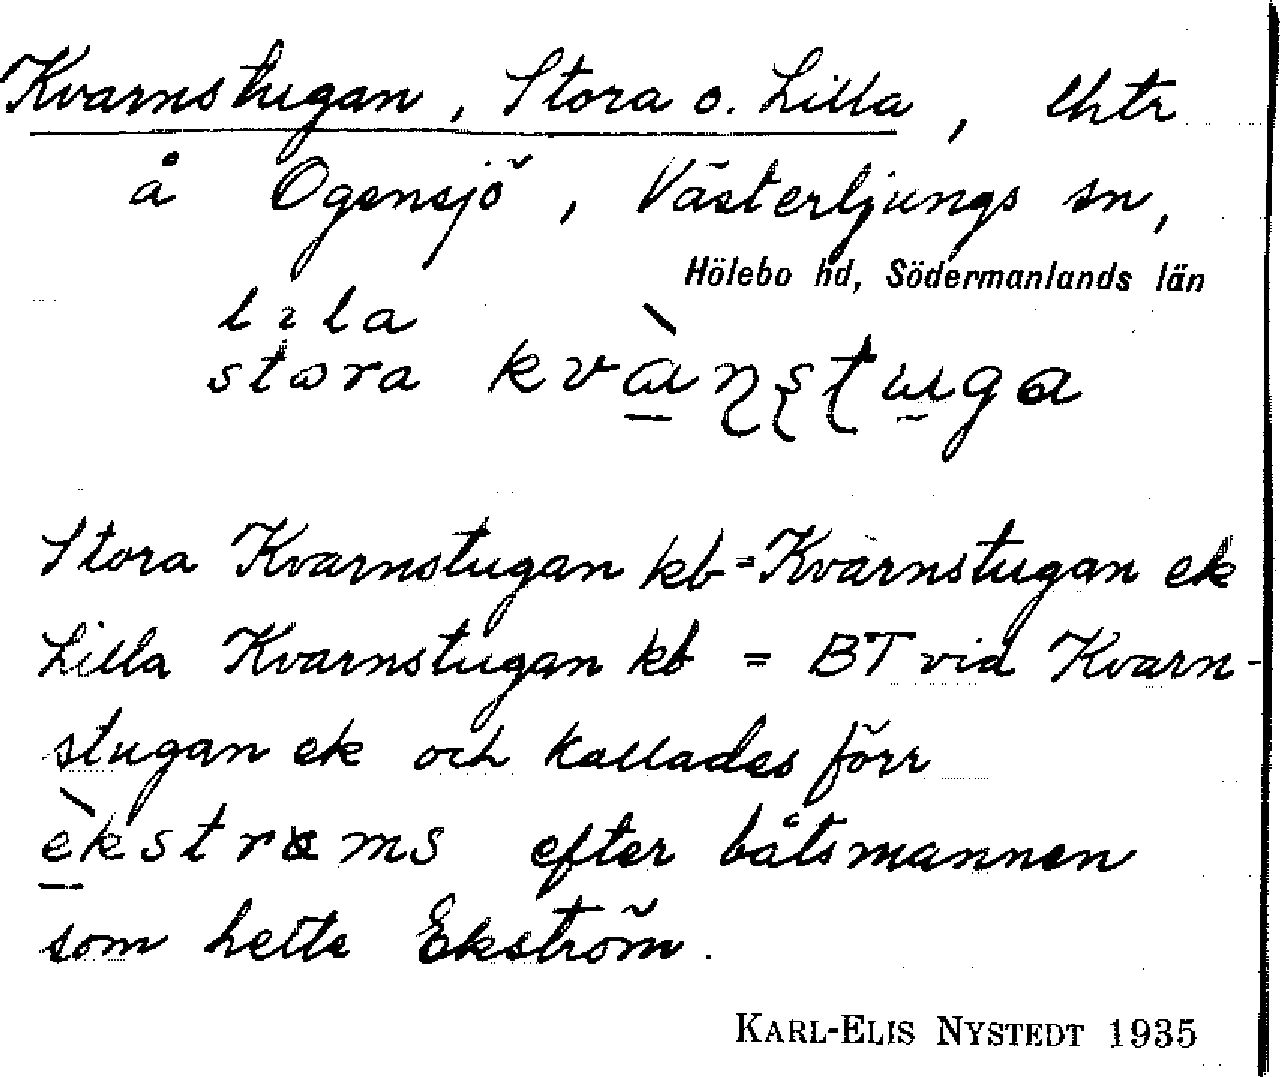 Kvarnstugan, Stora o. Lilla, lhtr
å Ogensjö, Västerljungs sn,
Hölebo hd, Södermanlands län
lıla
stωra kvàɳʂʈɯga
Stora Kvarnstugan kb = Kvarnstugan ek
Lilla Kvarnstugan kb = BT vid Kvarn-
stugan ek och kallades förr
èkstrɵms efter båtsmannen
som hette Ekström.
KARL-ELIS NYSTEDT 1935